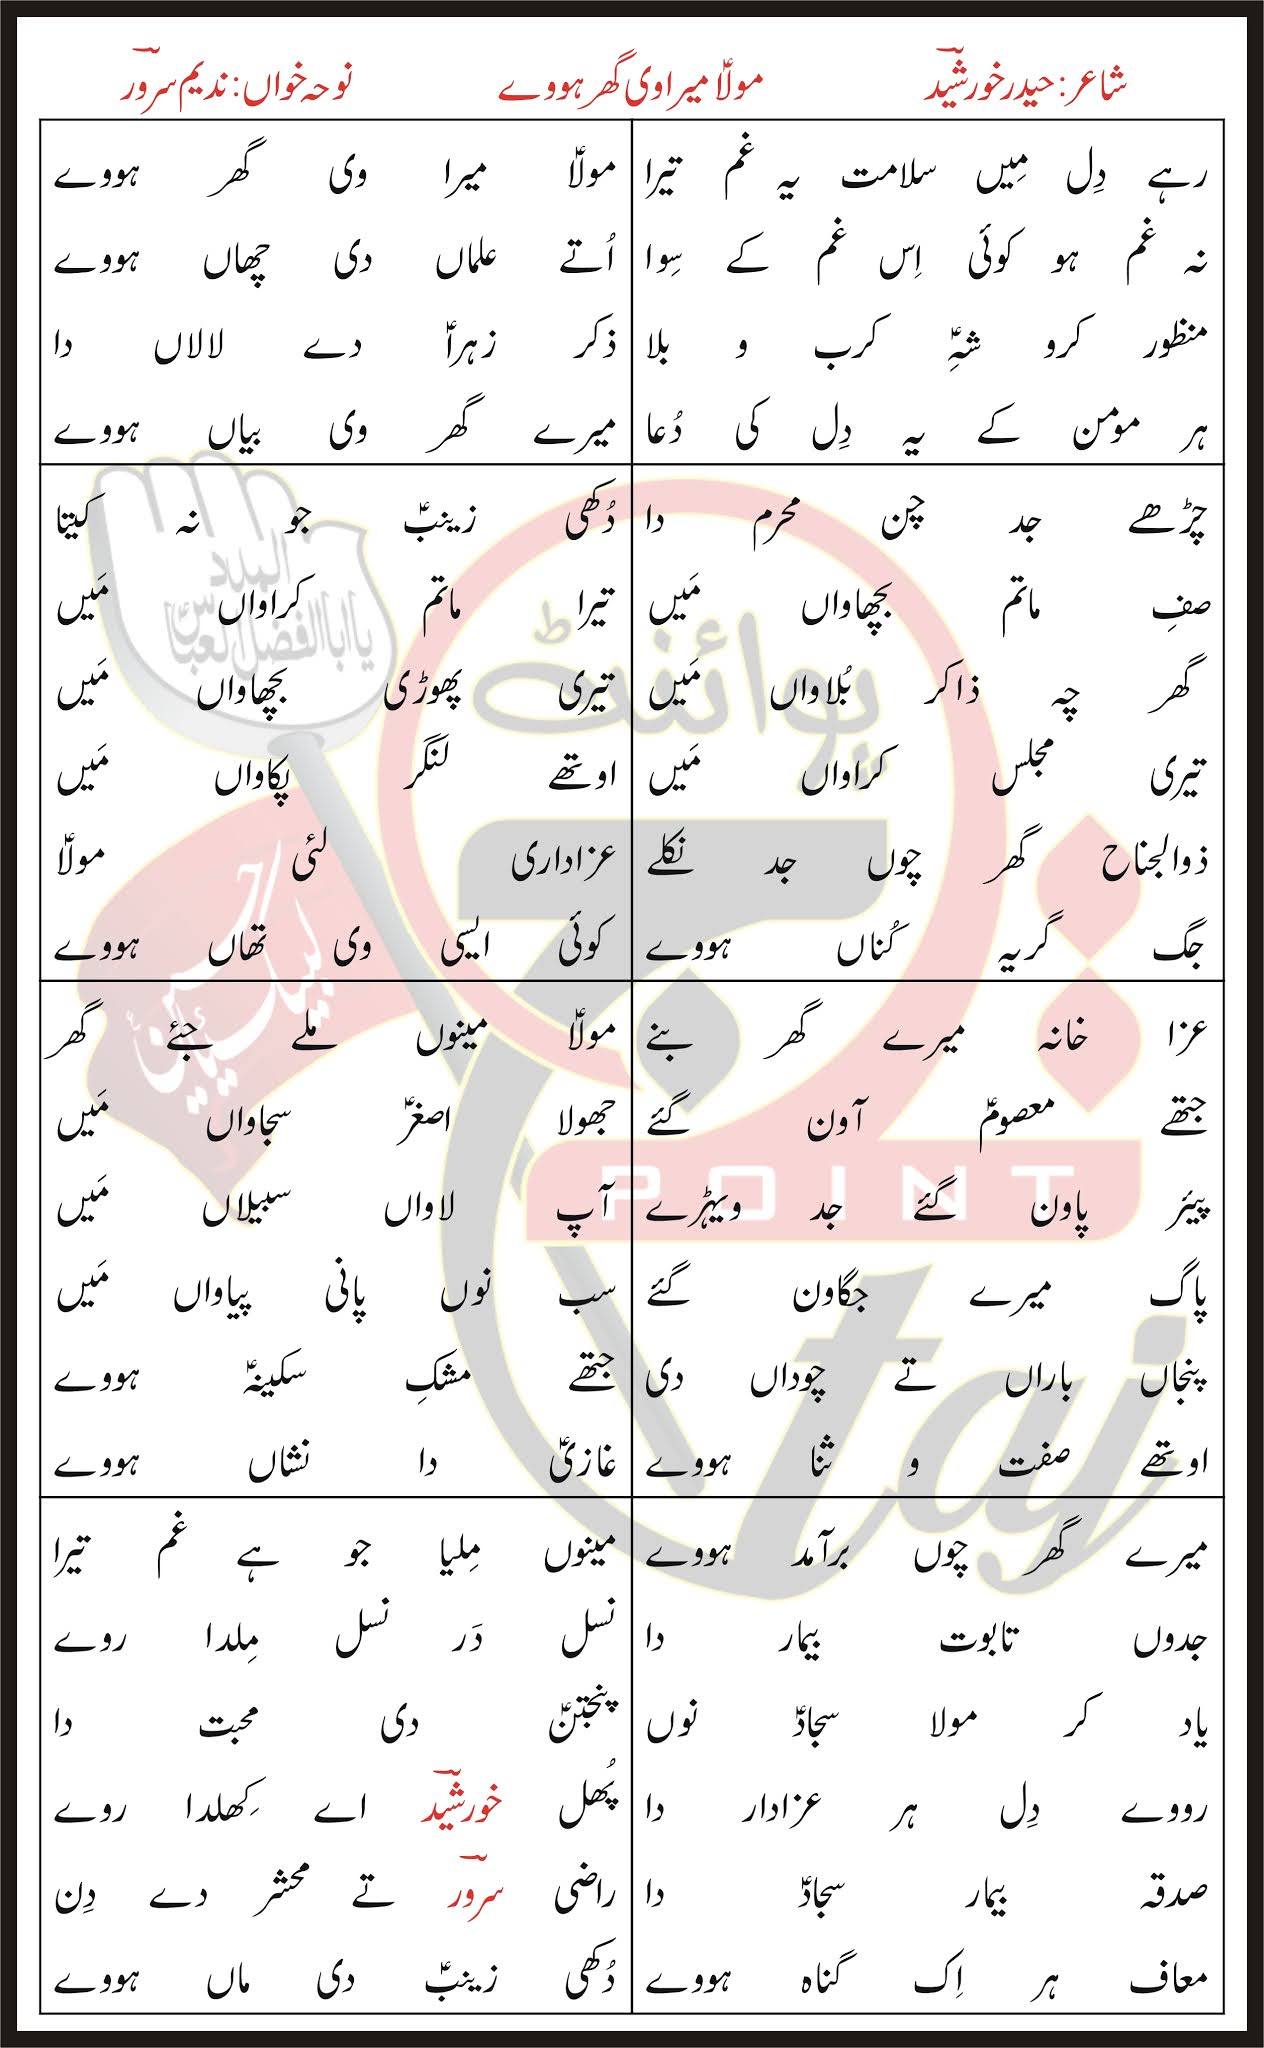 شاعر: حیدر خورشیدؔ
مولاؑ میرا وی گھر ہووے
نوحہ خواں: ندیم سرورؔ
رہے دِل مِیں سلامت یہ غم تیرا
نہ غم ہو کوئی اِس غم کے سِوا
منظور کرو شہِؑ کرب و بلا
ہر مومن کے یہ دِل کی دُعا
مولاؑ میرا وی گھر ہووے
اُتے علماں دی چھاں ہووے
ذکر زہراؑ دے لالاں دا
میرے گھر وی بیاں ہووے
چڑھے جد چن محرم دا
صفِ ماتم بچھاواں مَیں
گھر چہ ذاکر بُلاواں مَیں
تیری مجلس کراواں مَیں
ذوالجناح گھر چوں جد نکلے
جگ گریہ کُناں ہووے
دُکھی زینبؑ جو نہ کیتا
تیرا ماتم کراواں مَیں
تیری پھوڑی بچھاواں مَیں
اوتھے لنگر پکاواں مَیں
عزاداری لئی مولاؑ
کوئی ایسی وی تھاں ہووے
عزا خانہ میرے گھر بنے
جتھے معصومؑ آون گئے
پیئر پاون گئے جد ویہڑے
پاگ میرے جگاون گئے
پنجاں باراں تے چوداں دی
اوتھے صفت و ثنا ہووے
مولاؑ مینوں ملے جئے گھر
جھولا اصغرؑ سجاواں مَیں
آپ لاواں سبیلاں مَیں
سب نوں پانی پیاواں مَیں
جتھے مشکِ سکینہؑ ہووے
غازیؑ دا نشاں ہووے
میرے گھر چوں برآمد ہووے
جدوں تابوت بیمار دا
یاد کر مولا سجادؑ نوں
رووے دِل ہر عزادار دا
صدقہ بیمار سجادؑ دا
معاف ہر اِک گناہ ہووے
مینوں مِلیا جو ہے غم تیرا
نسل دَر نسل مِلدا روے
پنجتنؑ دی محبت دا
پُھل خورشیدؔ اے کِھلدا روے
راضی سرورؔ تے محشر دے دِن
دُکھی زینبؑ دی ماں ہووے
المدد
یا ابا الفضل العباسؑ
لبیک یا حسینؑ
پوائنٹ
POINT
taj